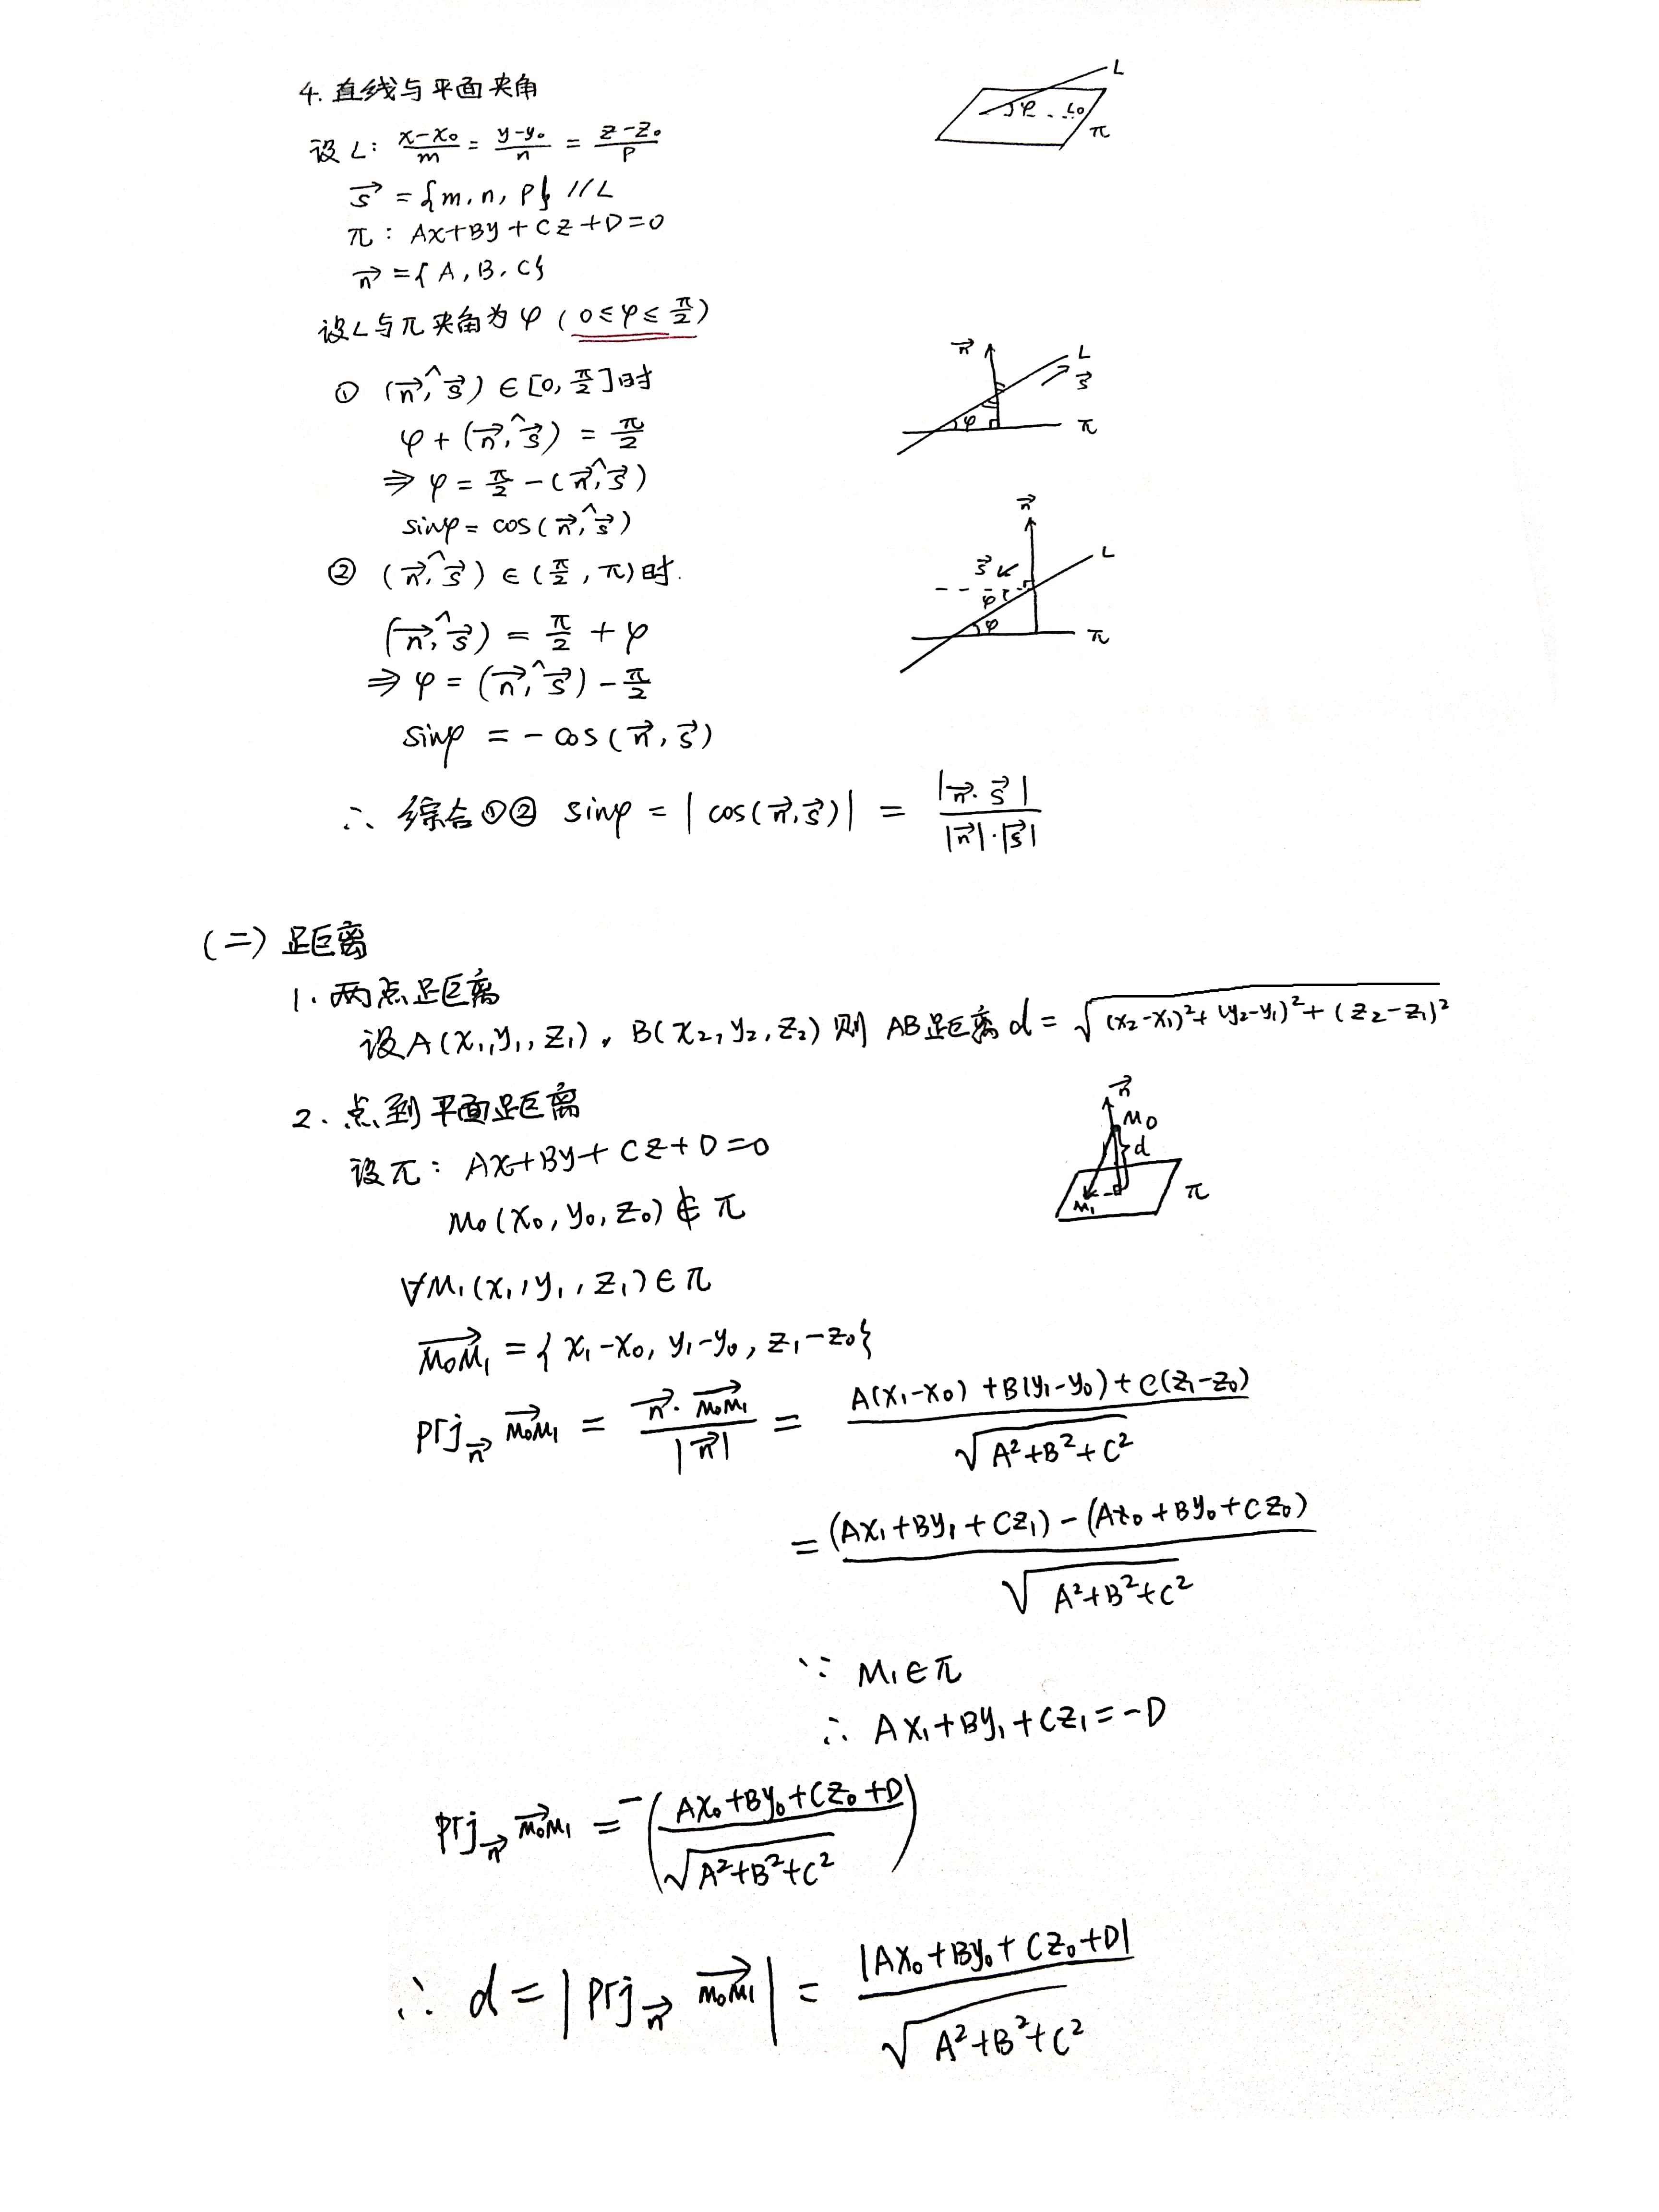 4. 直线与平面夹角
设 L: (x-x₀)/m = (y-y₀)/n = (z-z₀)/p
s⃗ = {m, n, p} // L
π: Ax+By+Cz+D=0
n⃗ = {A, B, C}
设L与π夹角为φ (0≤φ≤π/2)
① (n⃗,^s⃗) ∈ [0, π/2] 时
φ + (n⃗,^s⃗) = π/2
⇒ φ = π/2 - (n⃗,^s⃗)
sinφ = cos(n⃗,^s⃗)
② (n⃗,^s⃗) ∈ (π/2, π) 时.
(n⃗,^s⃗) = π/2 + φ
⇒ φ = (n⃗,^s⃗) - π/2
sinφ = -cos(n⃗, s⃗)
∴ 综合①② sinφ = |cos(n⃗,s⃗)| = |n⃗·s⃗| / (|n⃗|·|s⃗|)
L
φ
L₀
π
n⃗
L
s⃗
φ
π
n⃗
L
s⃗
φ
φ
π
(二) 距离
1. 两点距离
设A(x₁,y₁,z₁), B(x₂,y₂,z₂) 则 AB距离 d = √((x₂-x₁)²+(y₂-y₁)²+(z₂-z₁)²)
2. 点到平面距离
设π: Ax+By+Cz+D=0
M₀(x₀,y₀,z₀) ∉ π
∀M₁(x₁,y₁,z₁) ∈ π
M₀M₁⃗ = {x₁-x₀, y₁-y₀, z₁-z₀}
n⃗
M₀
d
M₁
π
Prj_n⃗ M₀M₁⃗ = (n⃗·M₀M₁⃗)/|n⃗| = (A(x₁-x₀)+B(y₁-y₀)+C(z₁-z₀))/√(A²+B²+C²)
= ((Ax₁+By₁+Cz₁)-(Ax₀+By₀+Cz₀))/√(A²+B²+C²)
∵ M₁∈π
∴ Ax₁+By₁+Cz₁=-D
Prj_n⃗ M₀M₁⃗ = -((Ax₀+By₀+Cz₀+D)/√(A²+B²+C²))
∴ d = |Prj_n⃗ M₀M₁⃗| = |Ax₀+By₀+Cz₀+D|/√(A²+B²+C²)